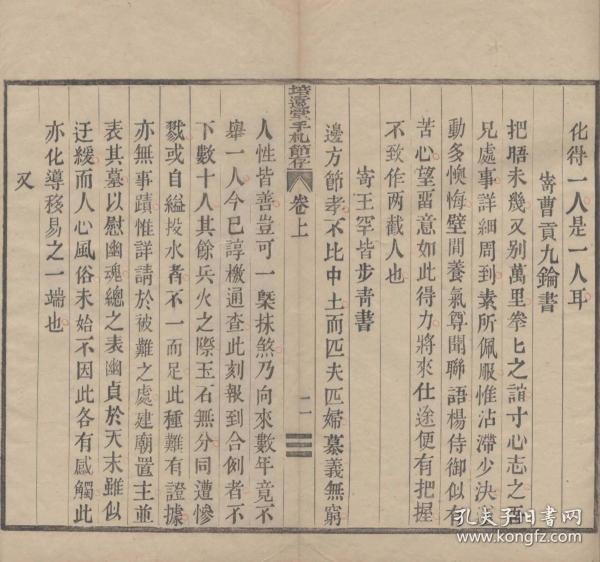 化得一人是一人耳
寄曹貢九鑰書
把晤未幾又別萬里拳匕之誼寸心志之
兄處事詳細周到素所佩服惟沾滯少決
動多懊悔壁間養氣尊聞聯語楊侍御似有
苦心望畱意如此得力將來仕途便有把握
不致作两截人也
寄王罕皆步青書
邊方節孝不比中土而匹夫匹婦慕義無窮
培遠堂手札節存
卷上
二一
人性皆善豈可一槩抹煞乃向來數年竟不
舉一人今已諄檄通查此刻報到合例者不
下數十人其餘兵火之際玉石無分同遭慘
戮或自縊投水者不一而足此種難有證據
亦無事蹟惟詳請於被難之處建廟置主並
表其墓以慰幽魂總之表幽貞於天末雖似
迂緩而人心風俗未始不因此各有感觸此
亦化導移易之一端也
又
孔夫子旧書网
www.kongfz.com